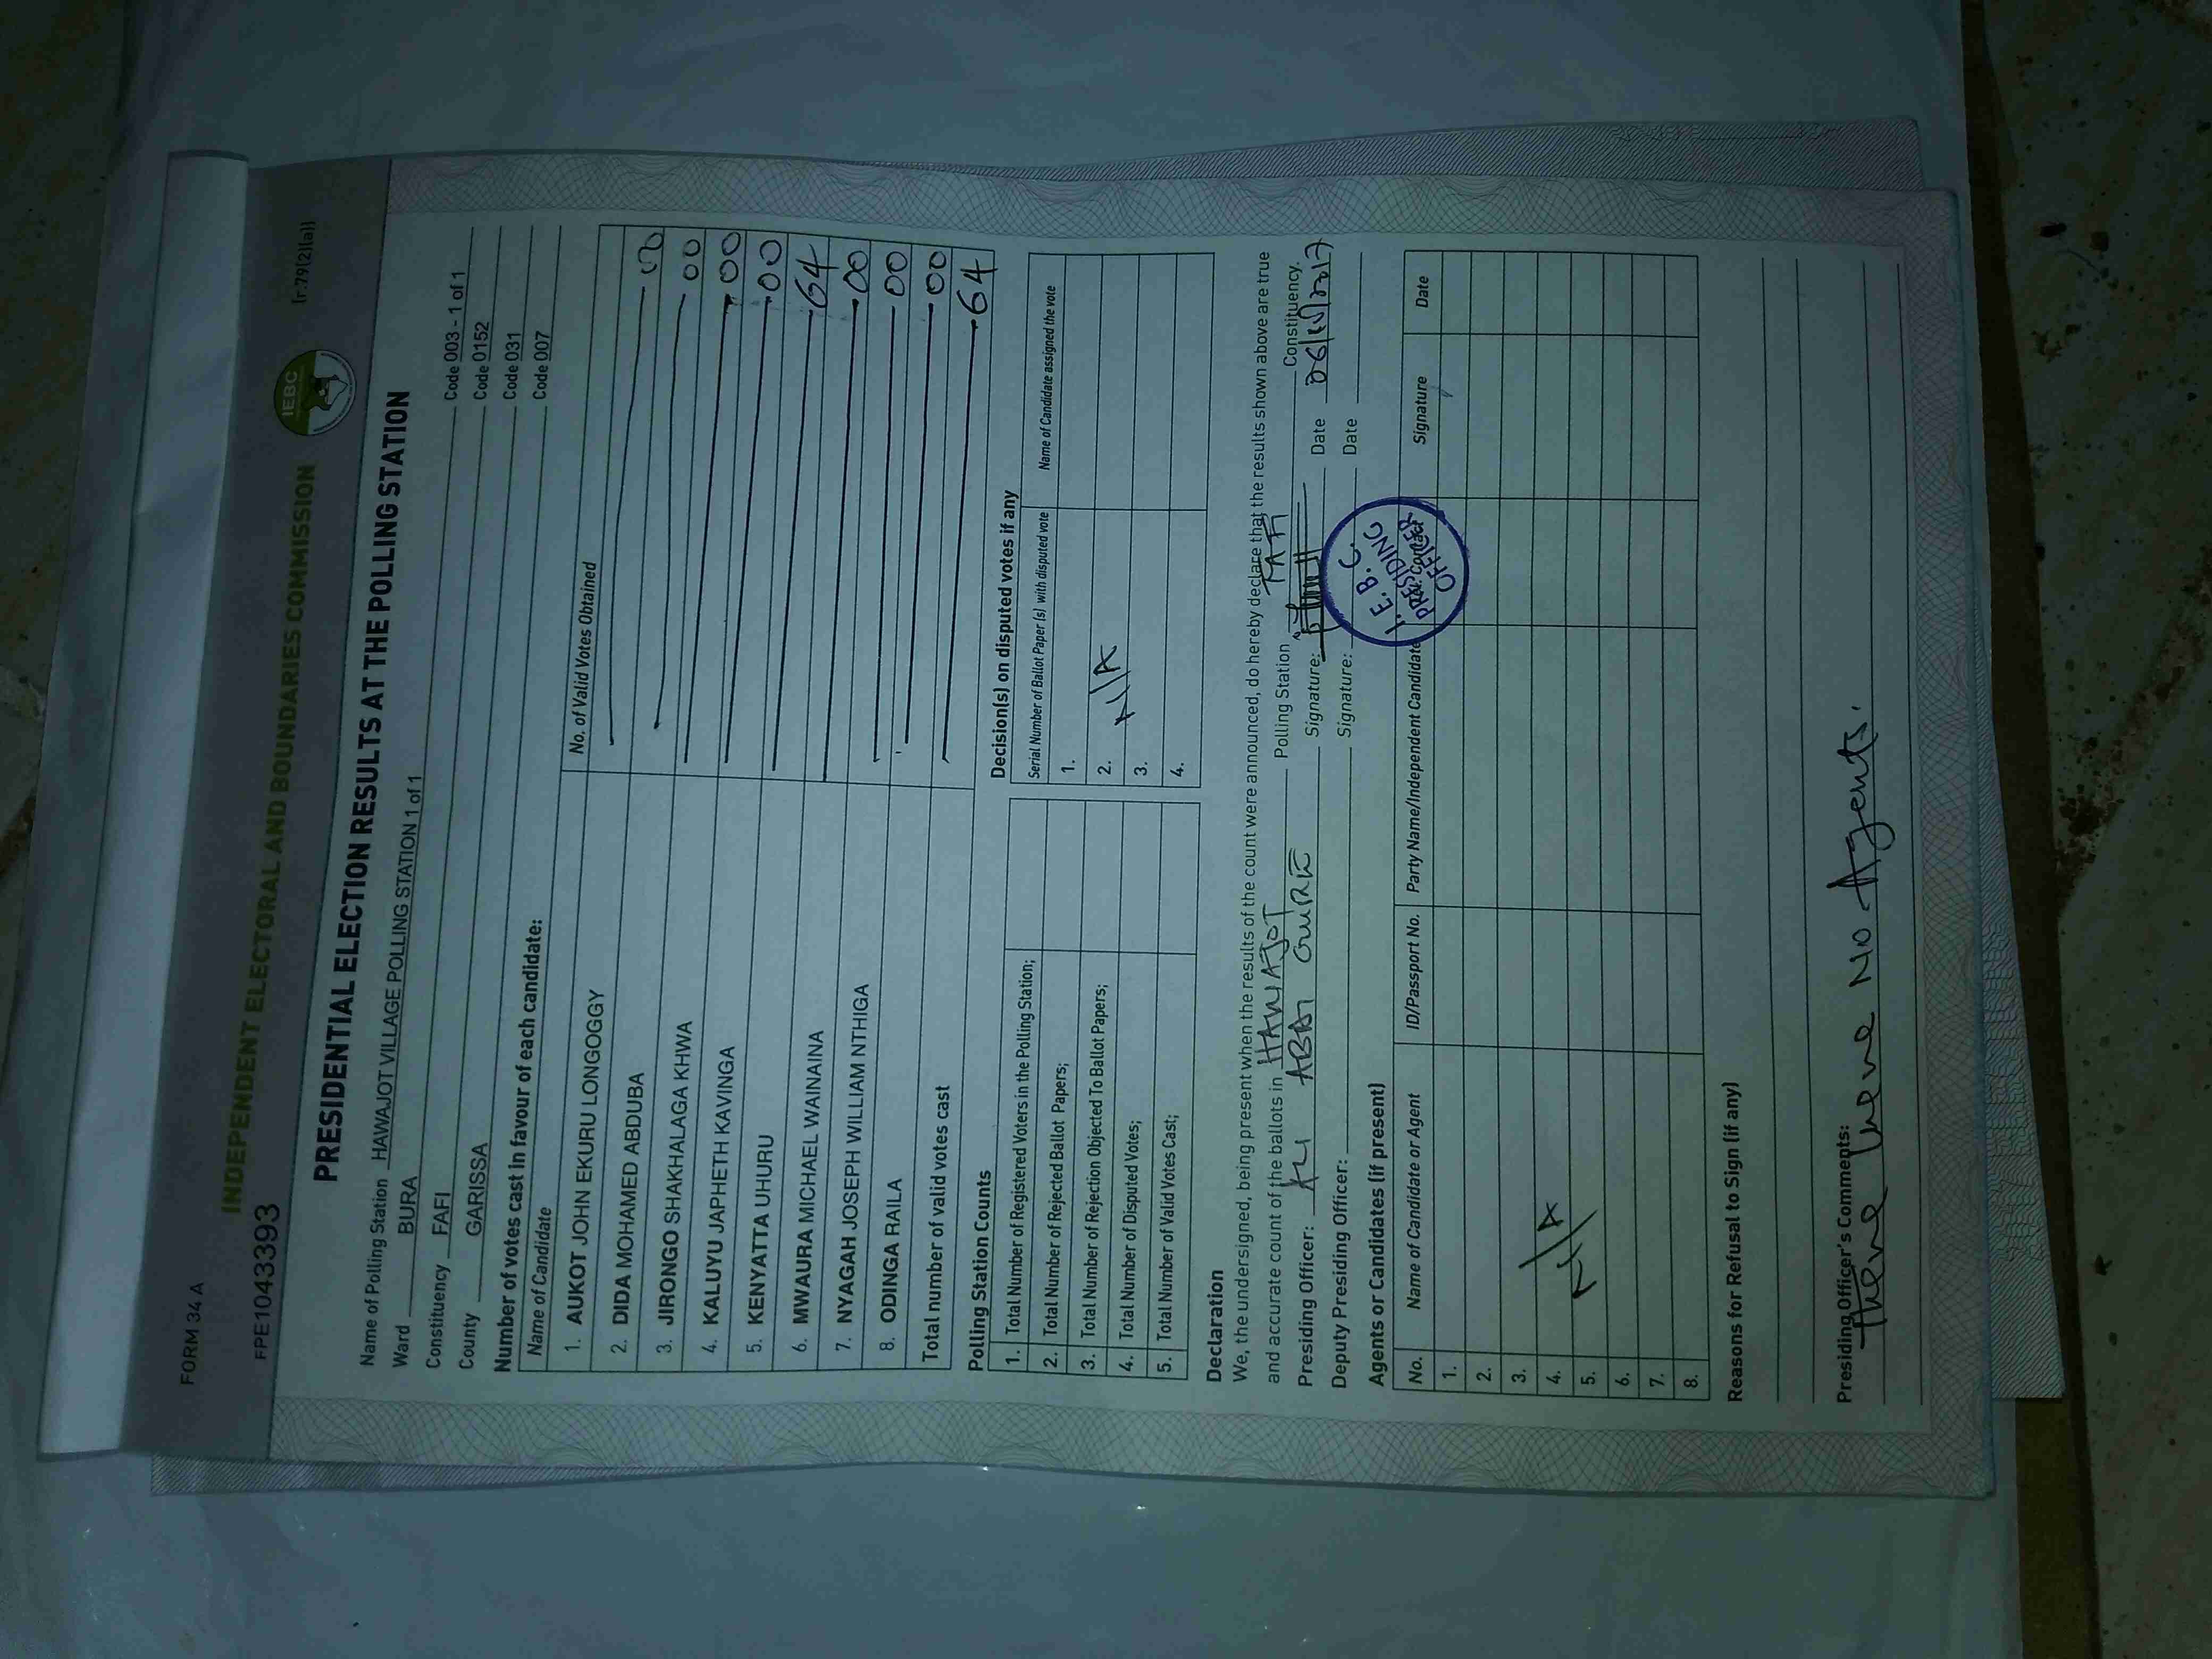 FORM 34 A
INDEPENDENT ELECTORAL AND BOUNDARIES COMMISSION
IEBC
(r.79(2)(a))
FPE1043393
PRESIDENTIAL ELECTION RESULTS AT THE POLLING STATION
Name of Polling Station HAWAJOT VILLAGE POLLING STATION 1 of 1 Code 003 - 1 of 1
Ward BURA Code 0152
Constituency FAFI Code 031
County GARISSA Code 007
Number of votes cast in favour of each candidate:
Name of Candidate No. of Valid Votes Obtained
1. AUKOT JOHN EKURU LONGOGGY 00
2. DIDA MOHAMED ABDUBA 00
3. JIRONGO SHAKHALAGA KHWA 00
4. KALUYU JAPHETH KAVINGA 00
5. KENYATTA UHURU 64
6. MWAURA MICHAEL WAINAINA 00
7. NYAGAH JOSEPH WILLIAM NTHIGA 00
8. ODINGA RAILA 00
Total number of valid votes cast 64
Polling Station Counts
1. Total Number of Registered Voters in the Polling Station;
2. Total Number of Rejected Ballot Papers;
3. Total Number of Rejection Objected To Ballot Papers;
4. Total Number of Disputed Votes;
5. Total Number of Valid Votes Cast;
Decision(s) on disputed votes if any
Serial Number of Ballot Paper (s) with disputed vote Name of Candidate assigned the vote
1.
2. N/A
3.
4.
Declaration
We, the undersigned, being present when the results of the count were announced, do hereby declare that the results shown above are true
and accurate count of the ballots in HAWAJOT Polling Station FAFI Constituency.
Presiding Officer: ALI ABDI GURE Signature: Date 26/10/2017
Deputy Presiding Officer: Signature: Date
I.E.B.C.
PRESIDING
OFFICER
Agents or Candidates (if present)
No. Name of Candidate or Agent ID/Passport No. Party Name/Independent Candidate Signature Date
1.
2.
3.
4. N/A
5.
6.
7.
8.
Reasons for Refusal to Sign (if any)
Presiding Officer's Comments:
There were no Agents.